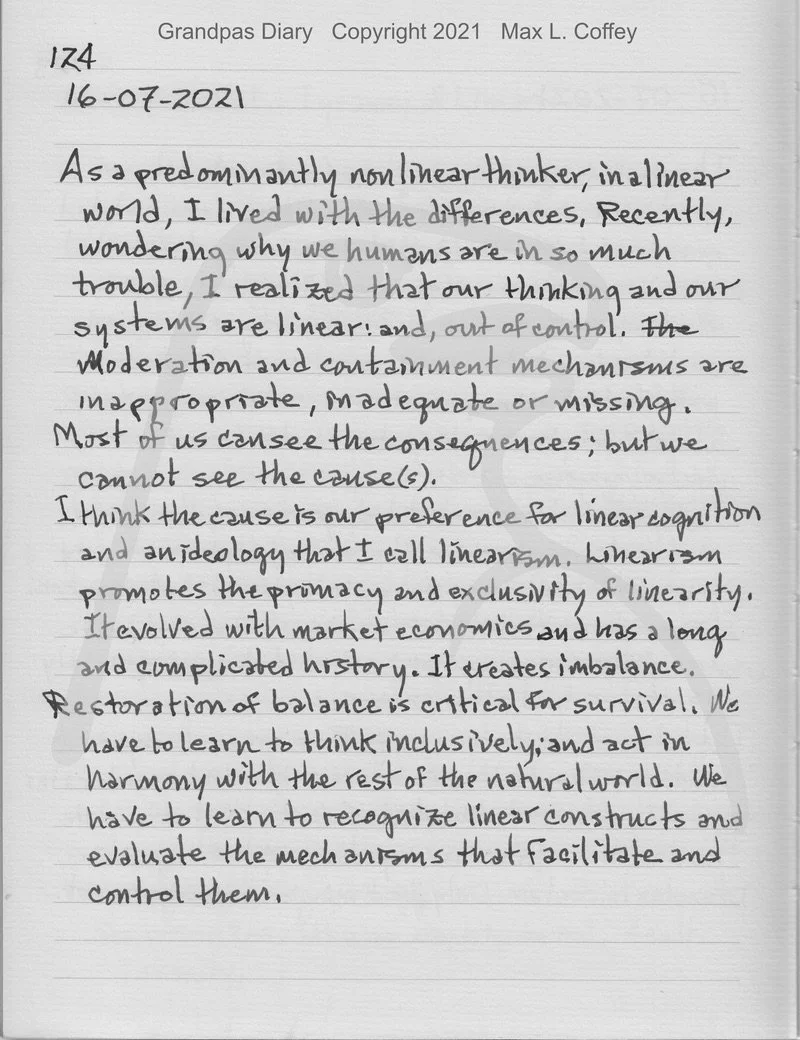 Grandpas Diary Copyright 2021 Max L. Coffey
124
16-07-2021
As a predominantly nonlinear thinker, in a linear
world, I lived with the differences. Recently,
wondering why we humans are in so much
trouble, I realized that our thinking and our
systems are linear: and, out of control. The
Moderation and containment mechanisms are
inappropriate, inadequate or missing.
Most of us can see the consequences; but we
cannot see the cause(s).
I think the cause is our preference for linear cognition
and an ideology that I call linearism. Linearism
promotes the primacy and exclusivity of linearity.
It evolved with market economics and has a long
and complicated history. It creates imbalance.
Restoration of balance is critical for survival. We
have to learn to think inclusively; and act in
harmony with the rest of the natural world. We
have to learn to recognize linear constructs and
evaluate the mechanisms that facilitate and
control them.